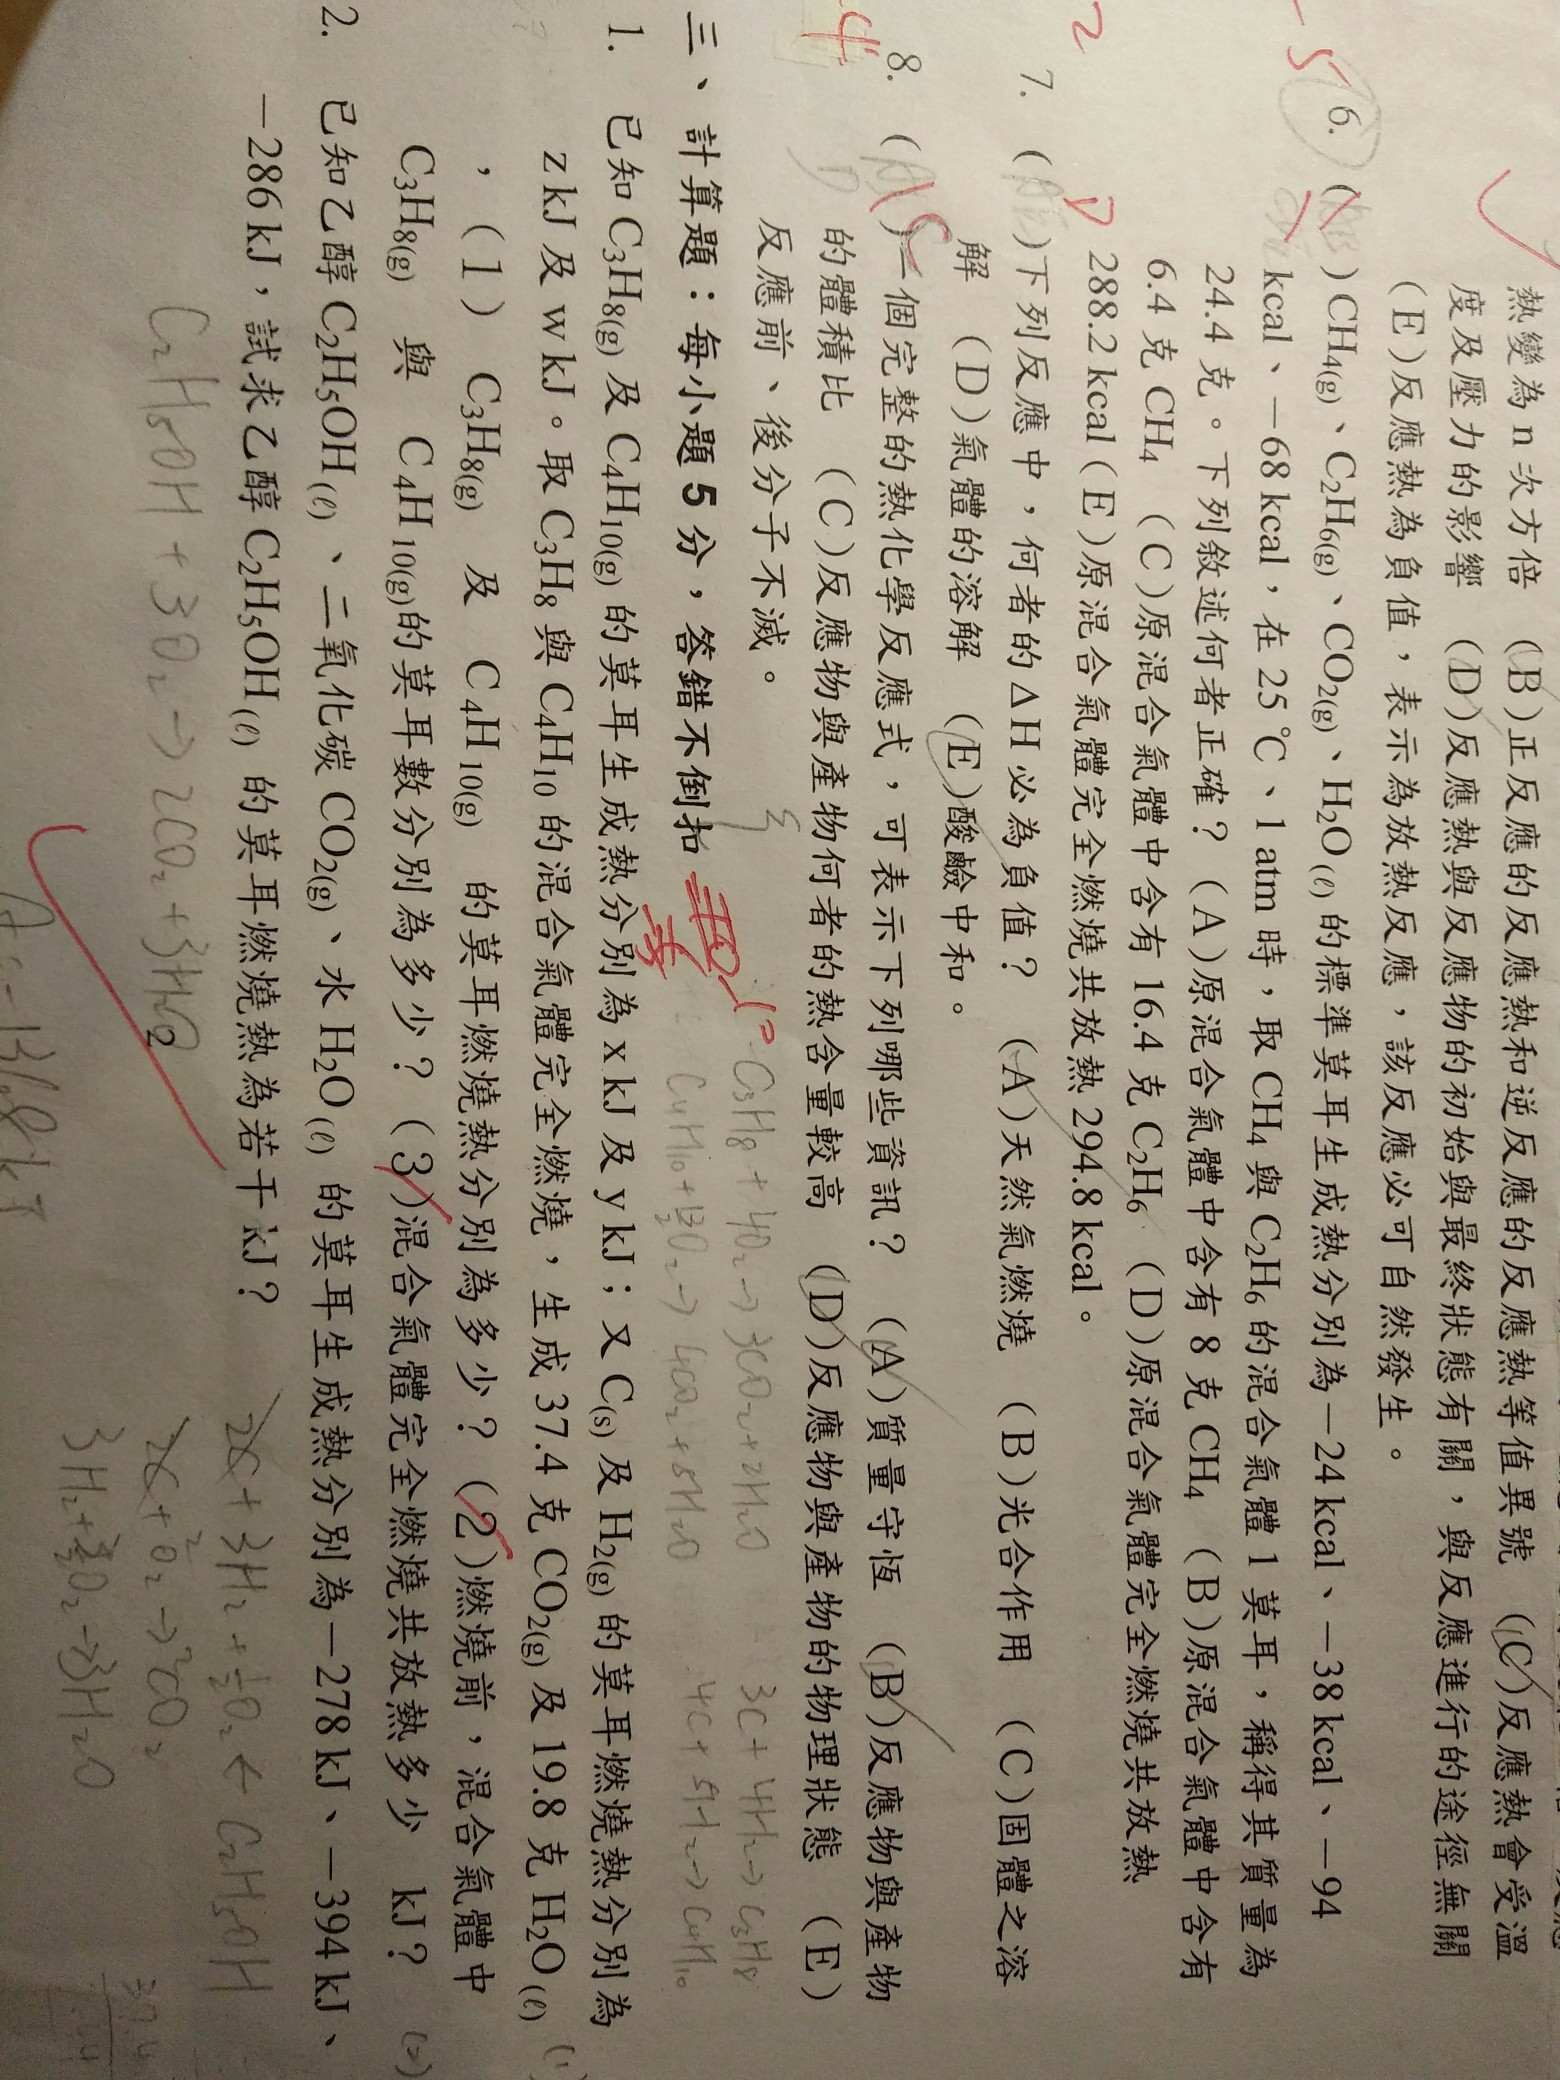 熱變為 n 次方倍 (B)正反應的反應熱和逆反應的反應熱等值異號 (C)反應熱會受溫
度及壓力的影響 (D)反應熱與反應物的初始與最終狀態有關，與反應進行的途徑無關
(E)反應熱為負值，表示為放熱反應，該反應必可自然發生。
-5
6. ( )CH4(g)、C2H6(g)、CO2(g)、H2O(ℓ)的標準莫耳生成熱分別為－24 kcal、－38 kcal、－94
kcal、－68 kcal，在 25℃、1 atm 時，取 CH4 與 C2H6 的混合氣體 1 莫耳，稱得其質量為
24.4 克。下列敘述何者正確？ (A)原混合氣體中含有 8 克 CH4 (B)原混合氣體中含有
6.4 克 CH4 (C)原混合氣體中含有 16.4 克 C2H6 (D)原混合氣體完全燃燒共放熱
288.2 kcal (E)原混合氣體完全燃燒共放熱 294.8 kcal。
2
D
7. (AE)下列反應中，何者的 ΔH 必為負值？ (A)天然氣燃燒 (B)光合作用 (C)固體之溶
解 (D)氣體的溶解 (E)酸鹼中和。
4
8. ( C)一個完整的熱化學反應式，可表示下列哪些資訊？ (A)質量守恆 (B)反應物與產物
D
的體積比 (C)反應物與產物何者的熱含量較高 (D)反應物與產物的物理狀態 (E)
反應前、後分子不滅。
三、計算題：每小題 5 分，答錯不倒扣
C3H8 + 4O2 → 3CO2 + 2H2O 3C + 4H2 → C3H8
C4H10 + 13/2 O2 → 4CO2 + 5H2O 4C + 5H2 → C4H10
1. 已知 C3H8(g) 及 C4H10(g) 的莫耳生成熱分別為 x kJ 及 y kJ；又 C(s) 及 H2(g) 的莫耳燃燒熱分別為
z kJ 及 w kJ。取 C3H8 與 C4H10 的混合氣體完全燃燒，生成 37.4 克 CO2(g) 及 19.8 克 H2O(ℓ) (1)
，(1) C3H8(g) 及 C4H10(g) 的莫耳燃燒熱分別為多少？(2)燃燒前，混合氣體中
C3H8(g) 與 C4H10(g)的莫耳數分別為多少？(3)混合氣體完全燃燒共放熱多少 kJ？ (2)
2. 已知乙醇 C2H5OH(ℓ)、二氧化碳 CO2(g)、水 H2O(ℓ) 的莫耳生成熱分別為－278 kJ、－394 kJ、
－286 kJ，試求乙醇 C2H5OH(ℓ) 的莫耳燃燒熱為若干 kJ？
2C + 3H2 + 1/2 O2 ← C2H5OH
C2H5OH + 3O2 → 2CO2 + 3H2O
2C + 2O2 → 2CO2
3H2 + 3/2 O2 → 3H2O
37.4